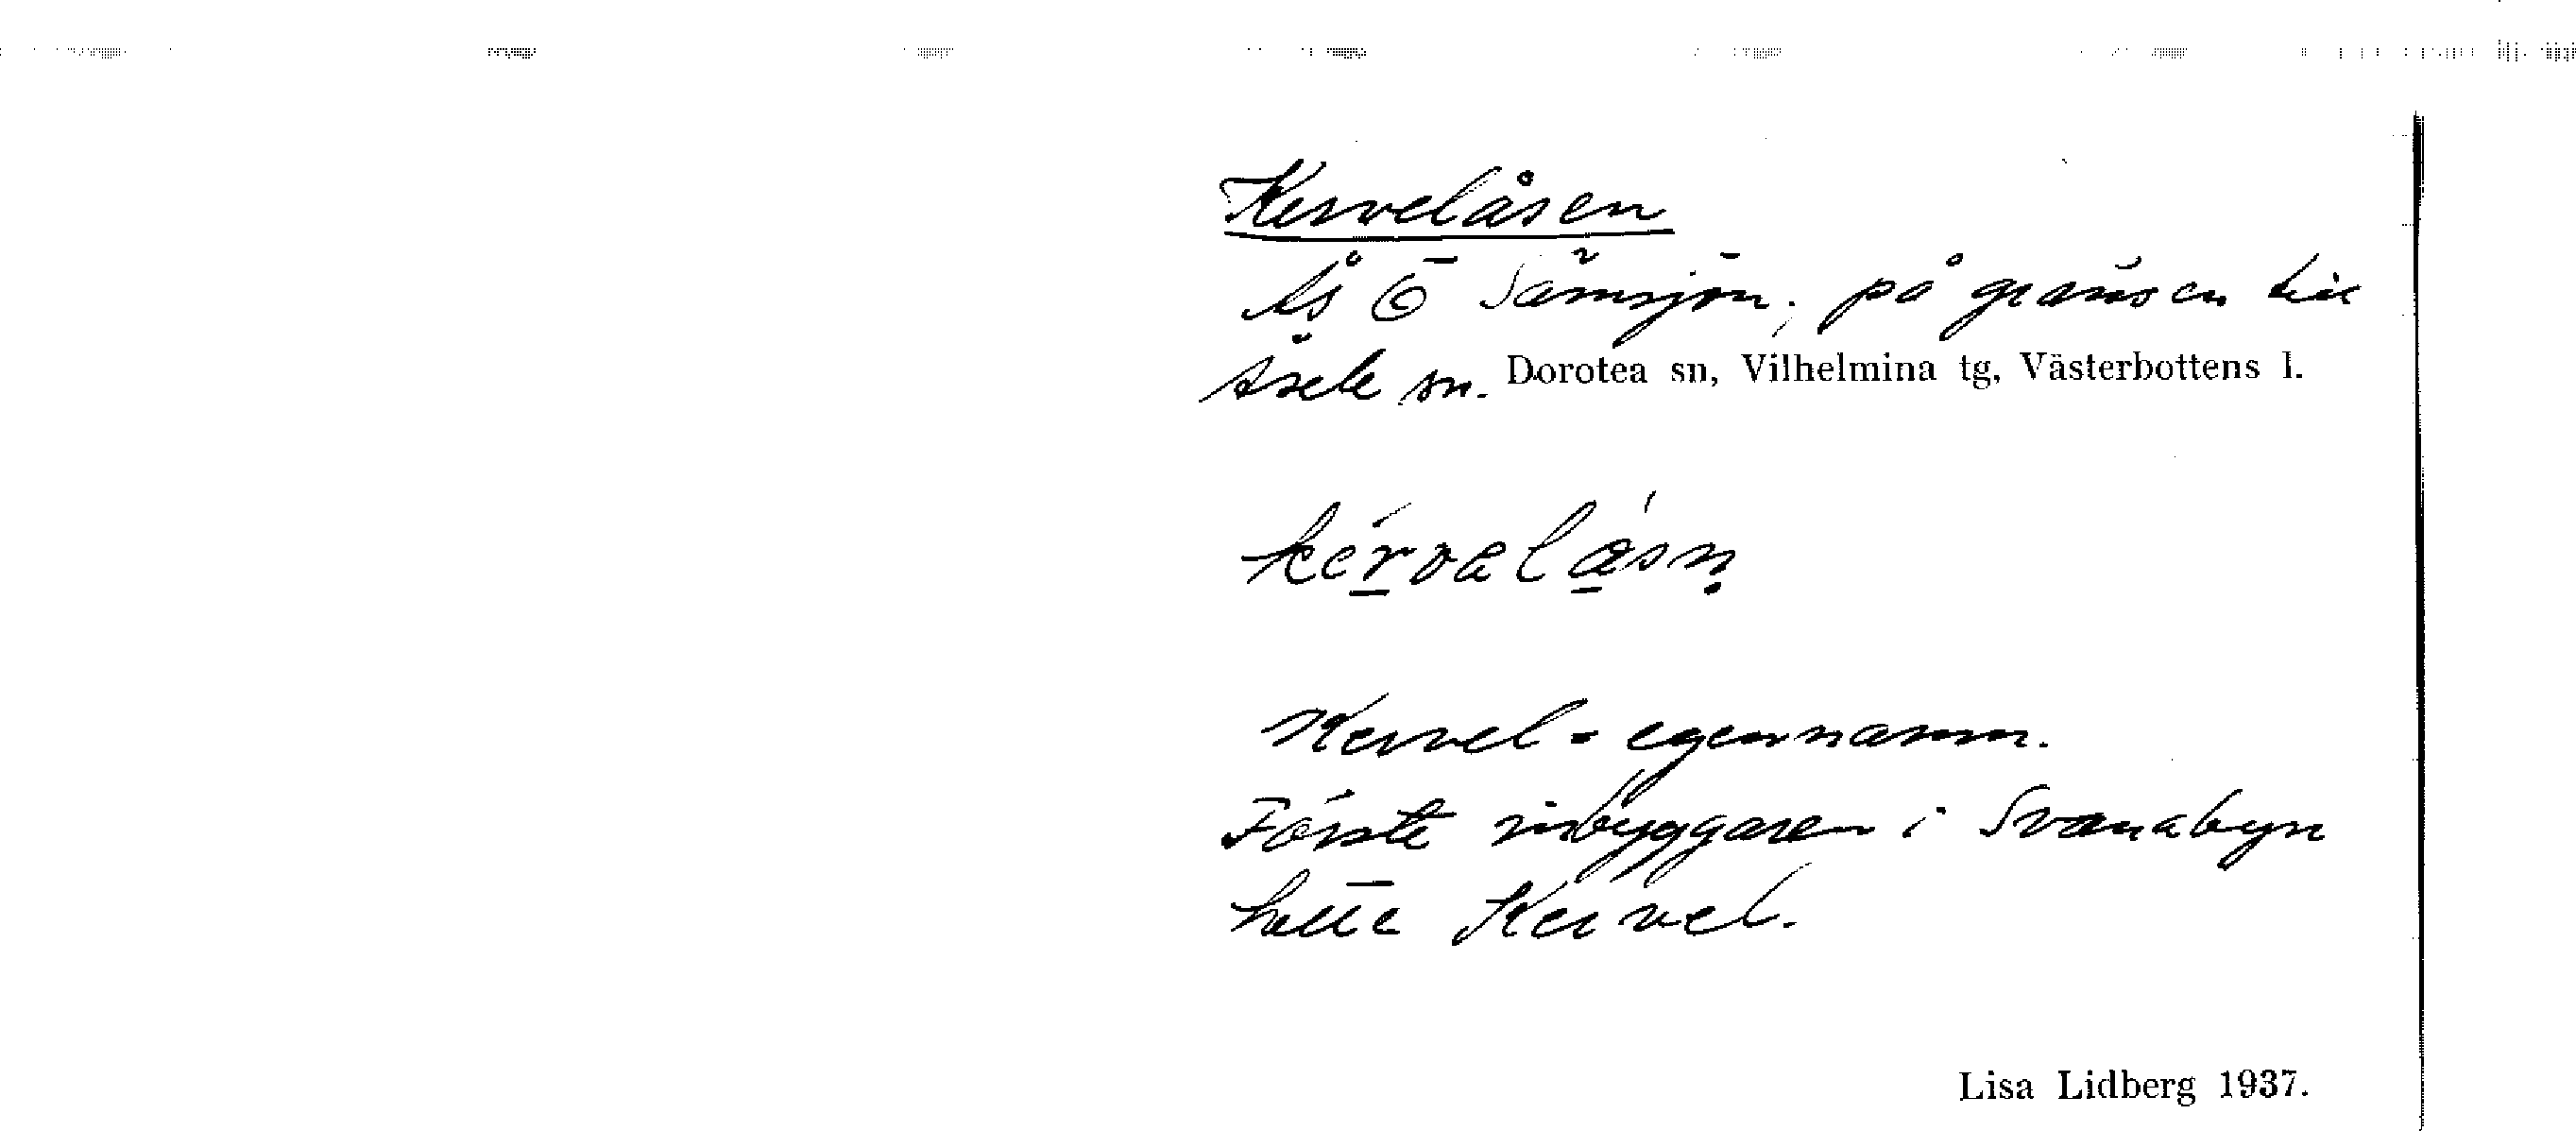 Kervelåsen
Ås Ö Sämsjön, på gränsen till
Åsele sn. Dorotea sn, Vilhelmina tg, Västerbottens l.
Kervel = egennamn.
Förste inbyggaren i Svanabyn
hette Kervel.
Lisa Lidberg 1937.